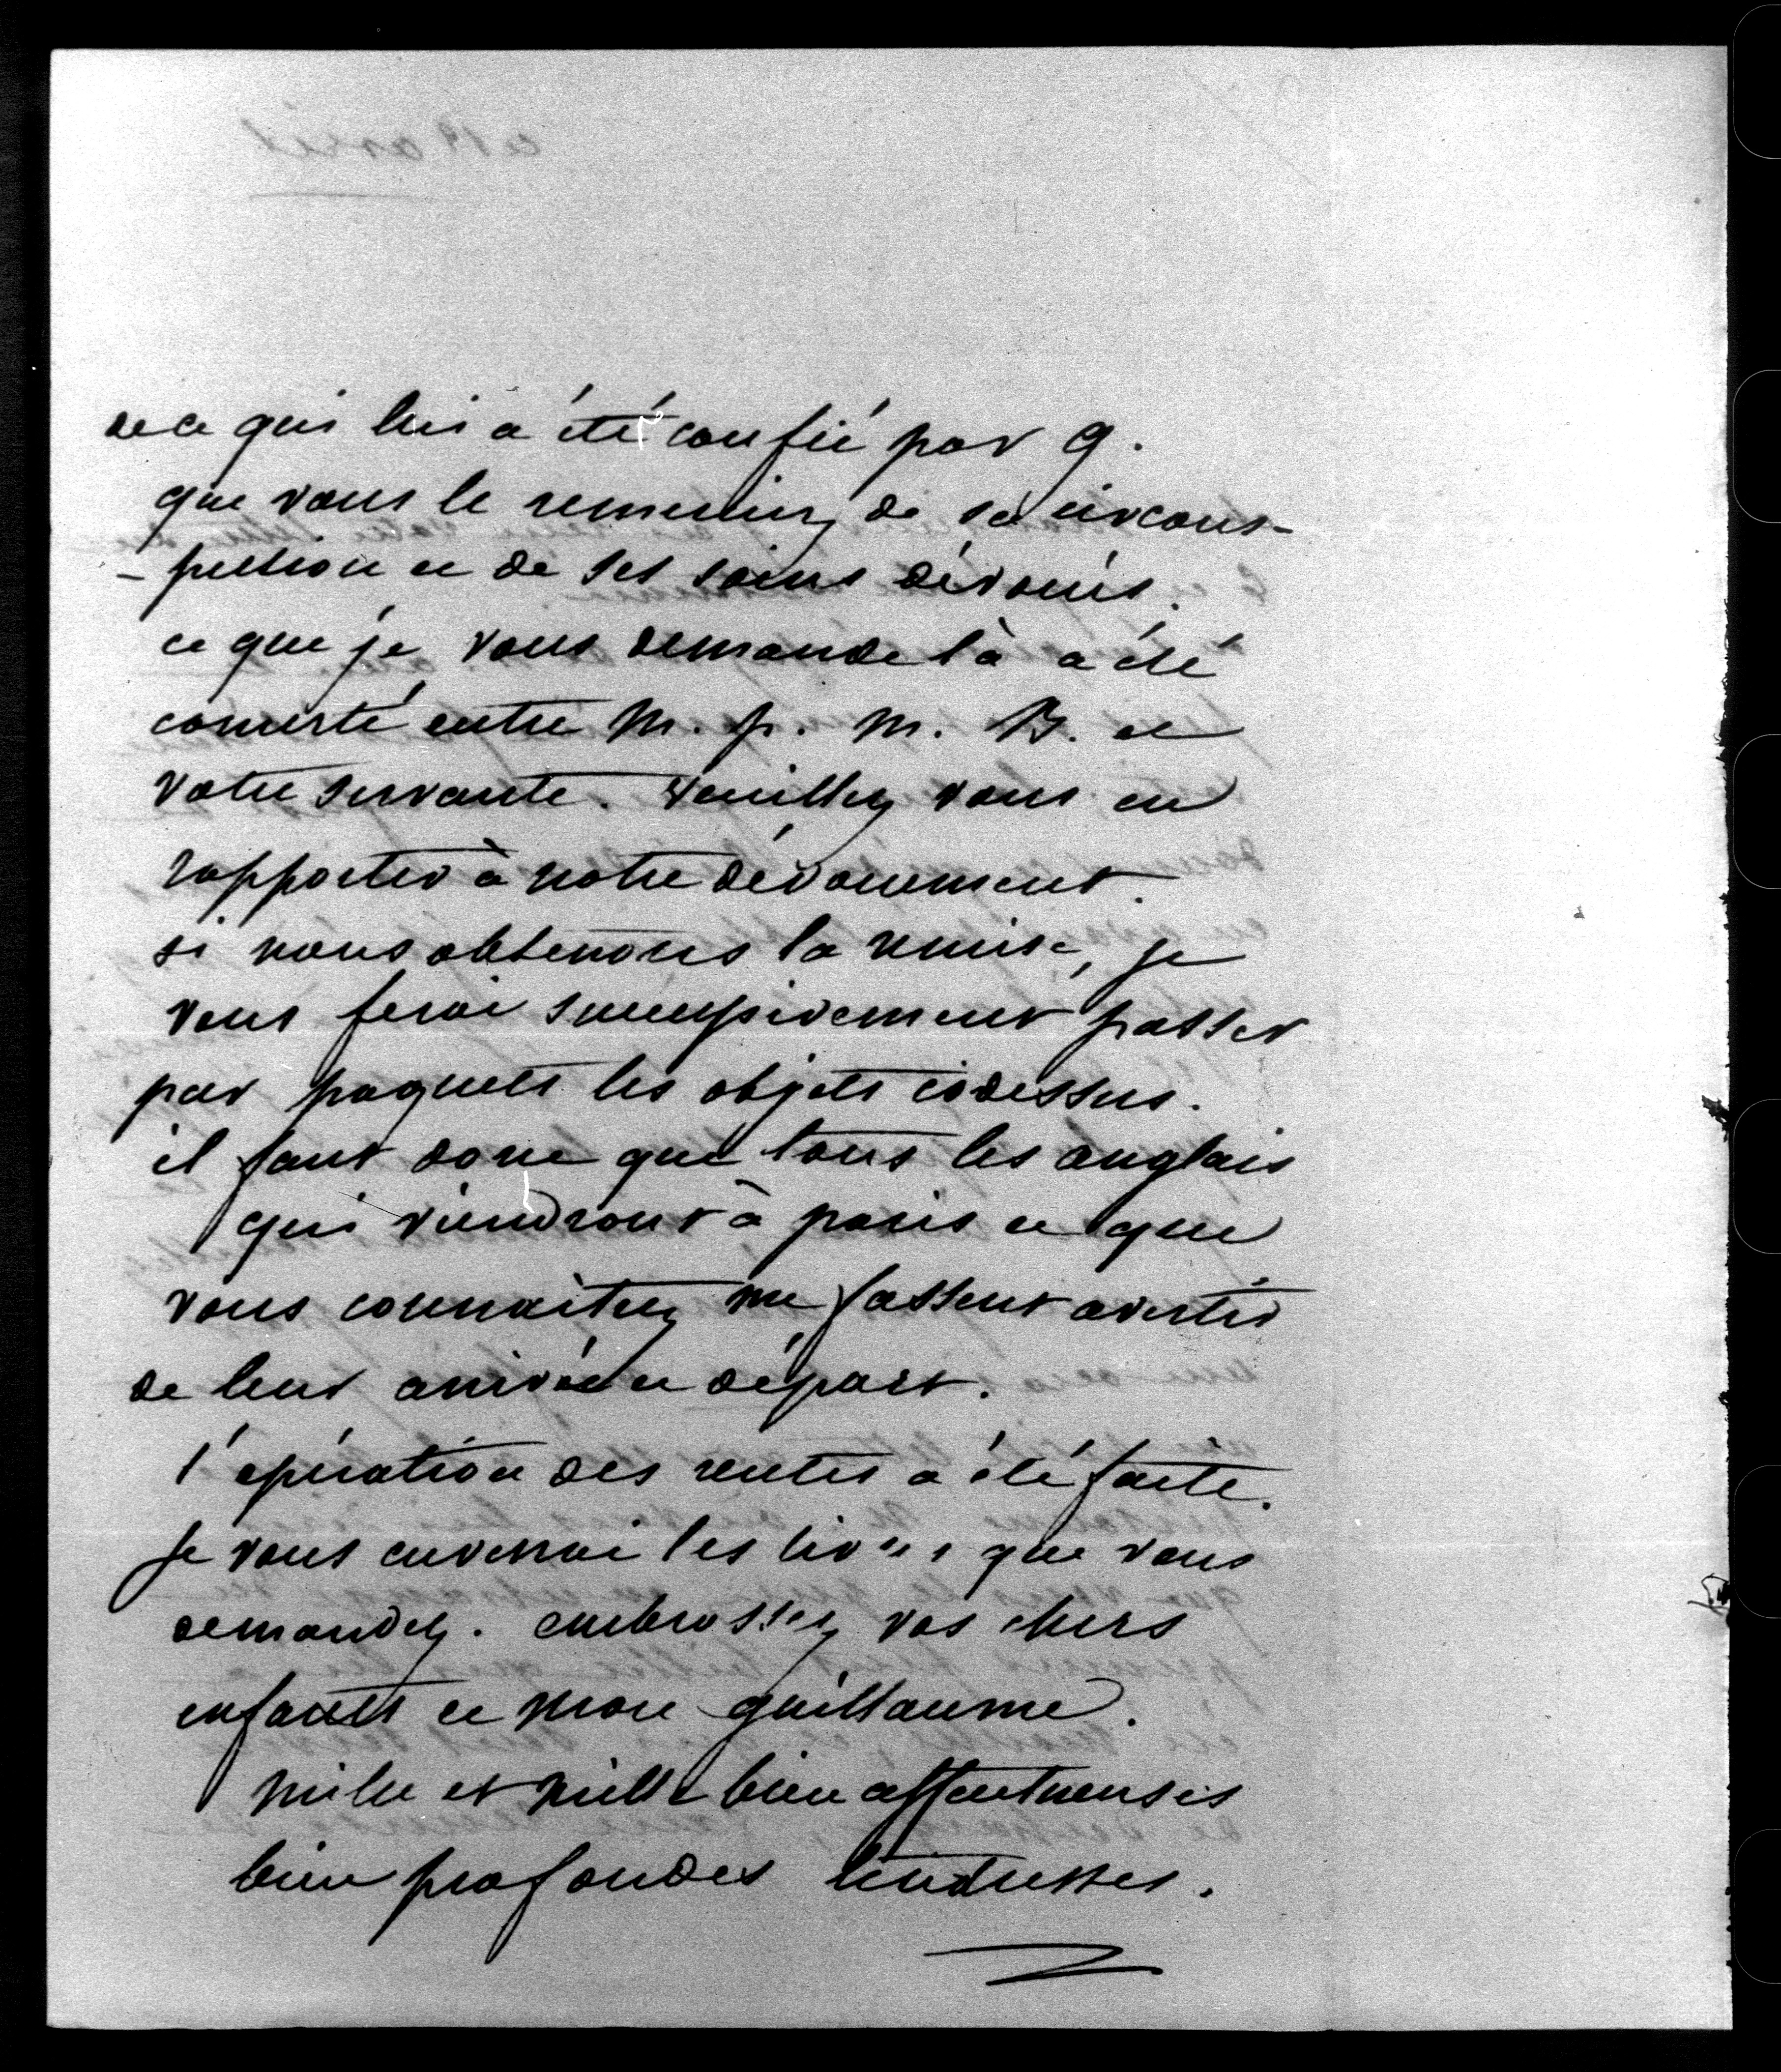 de ce qui lui a été confié par G.
que vous le remerciez de sa circons-
-pection et de ses soins dévoués.
ce que je vous demande là a été
concerté entre M. p. M. B. et
votre servante. Veuillez vous en
rapporter à notre dévouement.
si nous obtenons la remise, je
vous ferai successivement passer
par paquets les objets ci dessus.
il faut donc que tous les anglais
qui viendront à paris et que
vous connaitrez me fassent avertir
de leur arrivée et départ.
l'opération des rentes a été faite.
je vous enverrai les livres que vous
demandez. embrassez vos chers
enfants et mon guillaume.
mille et mille bien affectueuses
bien profondes tendresses.